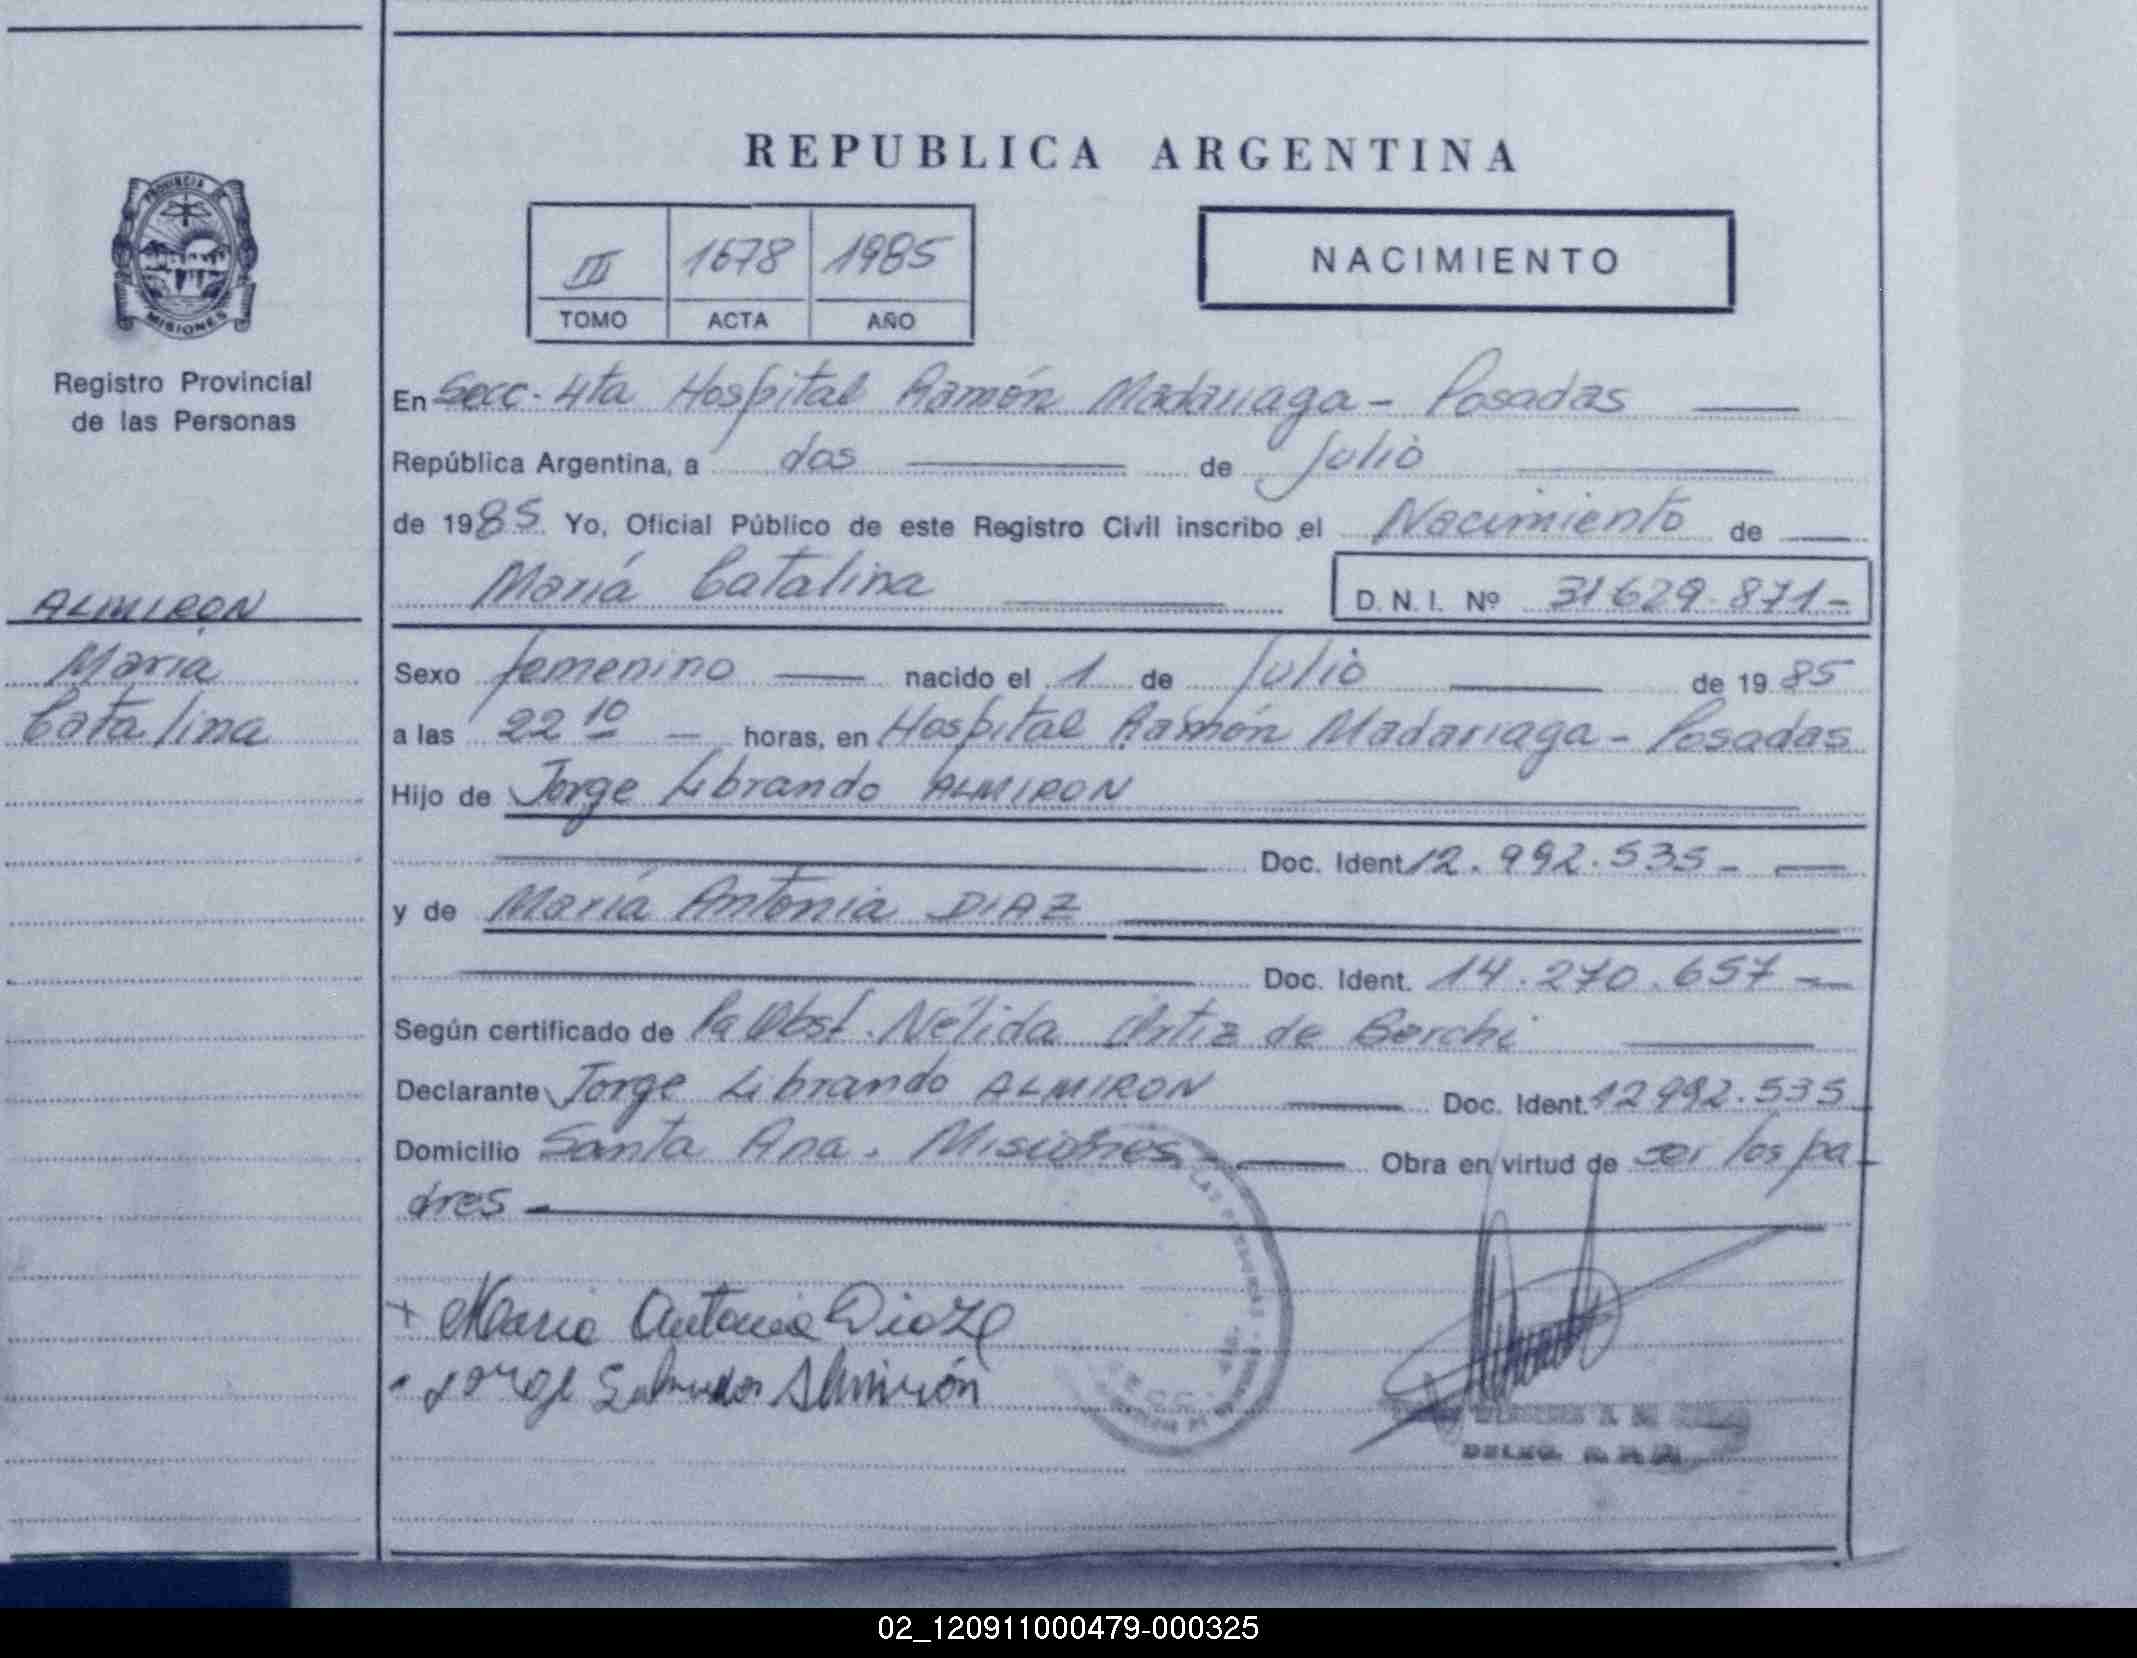 REPUBLICA ARGENTINA
PROVINCIA DE
MISIONES
Registro Provincial
de las Personas
III 1678 1985
TOMO ACTA AÑO
NACIMIENTO
En Secc. 4ta Hospital Ramón Madariaga - Posadas
República Argentina, a dos de Julio
de 1985 Yo, Oficial Público de este Registro Civil inscribo el Nacimiento de
María Catalina D. N. I. Nº 31629.871-
ALMIRON
María
Catalina
Sexo femenino nacido el 1 de Julio de 1985
a las 22 10 - horas, en Hospital Ramón Madariaga - Posadas
Hijo de Jorge Librando ALMIRON
Doc. Ident. 12.992.535-
y de María Antonia DIAZ
Doc. Ident. 14.270.657-
Según certificado de la Obst. Nélida Ortiz de Berchi
Declarante Jorge Librando ALMIRON Doc. Ident. 12992.535
Domicilio Santa Ana. Misiones Obra en virtud de ser los pa
dres -
+ Maria Antonia Diaz
Jorge Almirón
02_120911000479-000325